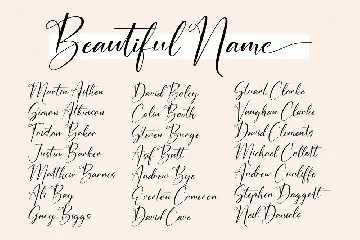 Beautiful Name
Martin Aitken
Simon Atkinson
Tristan Baker
Justin Barker
Matthew Barnes
Ali Bay
Gary Biggs
David Boley
Colin Booth
Steven Burge
Asif Butt
Andrew Bye
Everton Cameron
David Cave
Stuart Clarke
Vaughan Clarke
David Clements
Michael Collett
Andrew Cunliffe
Stephen Daggett
Neil Daniels